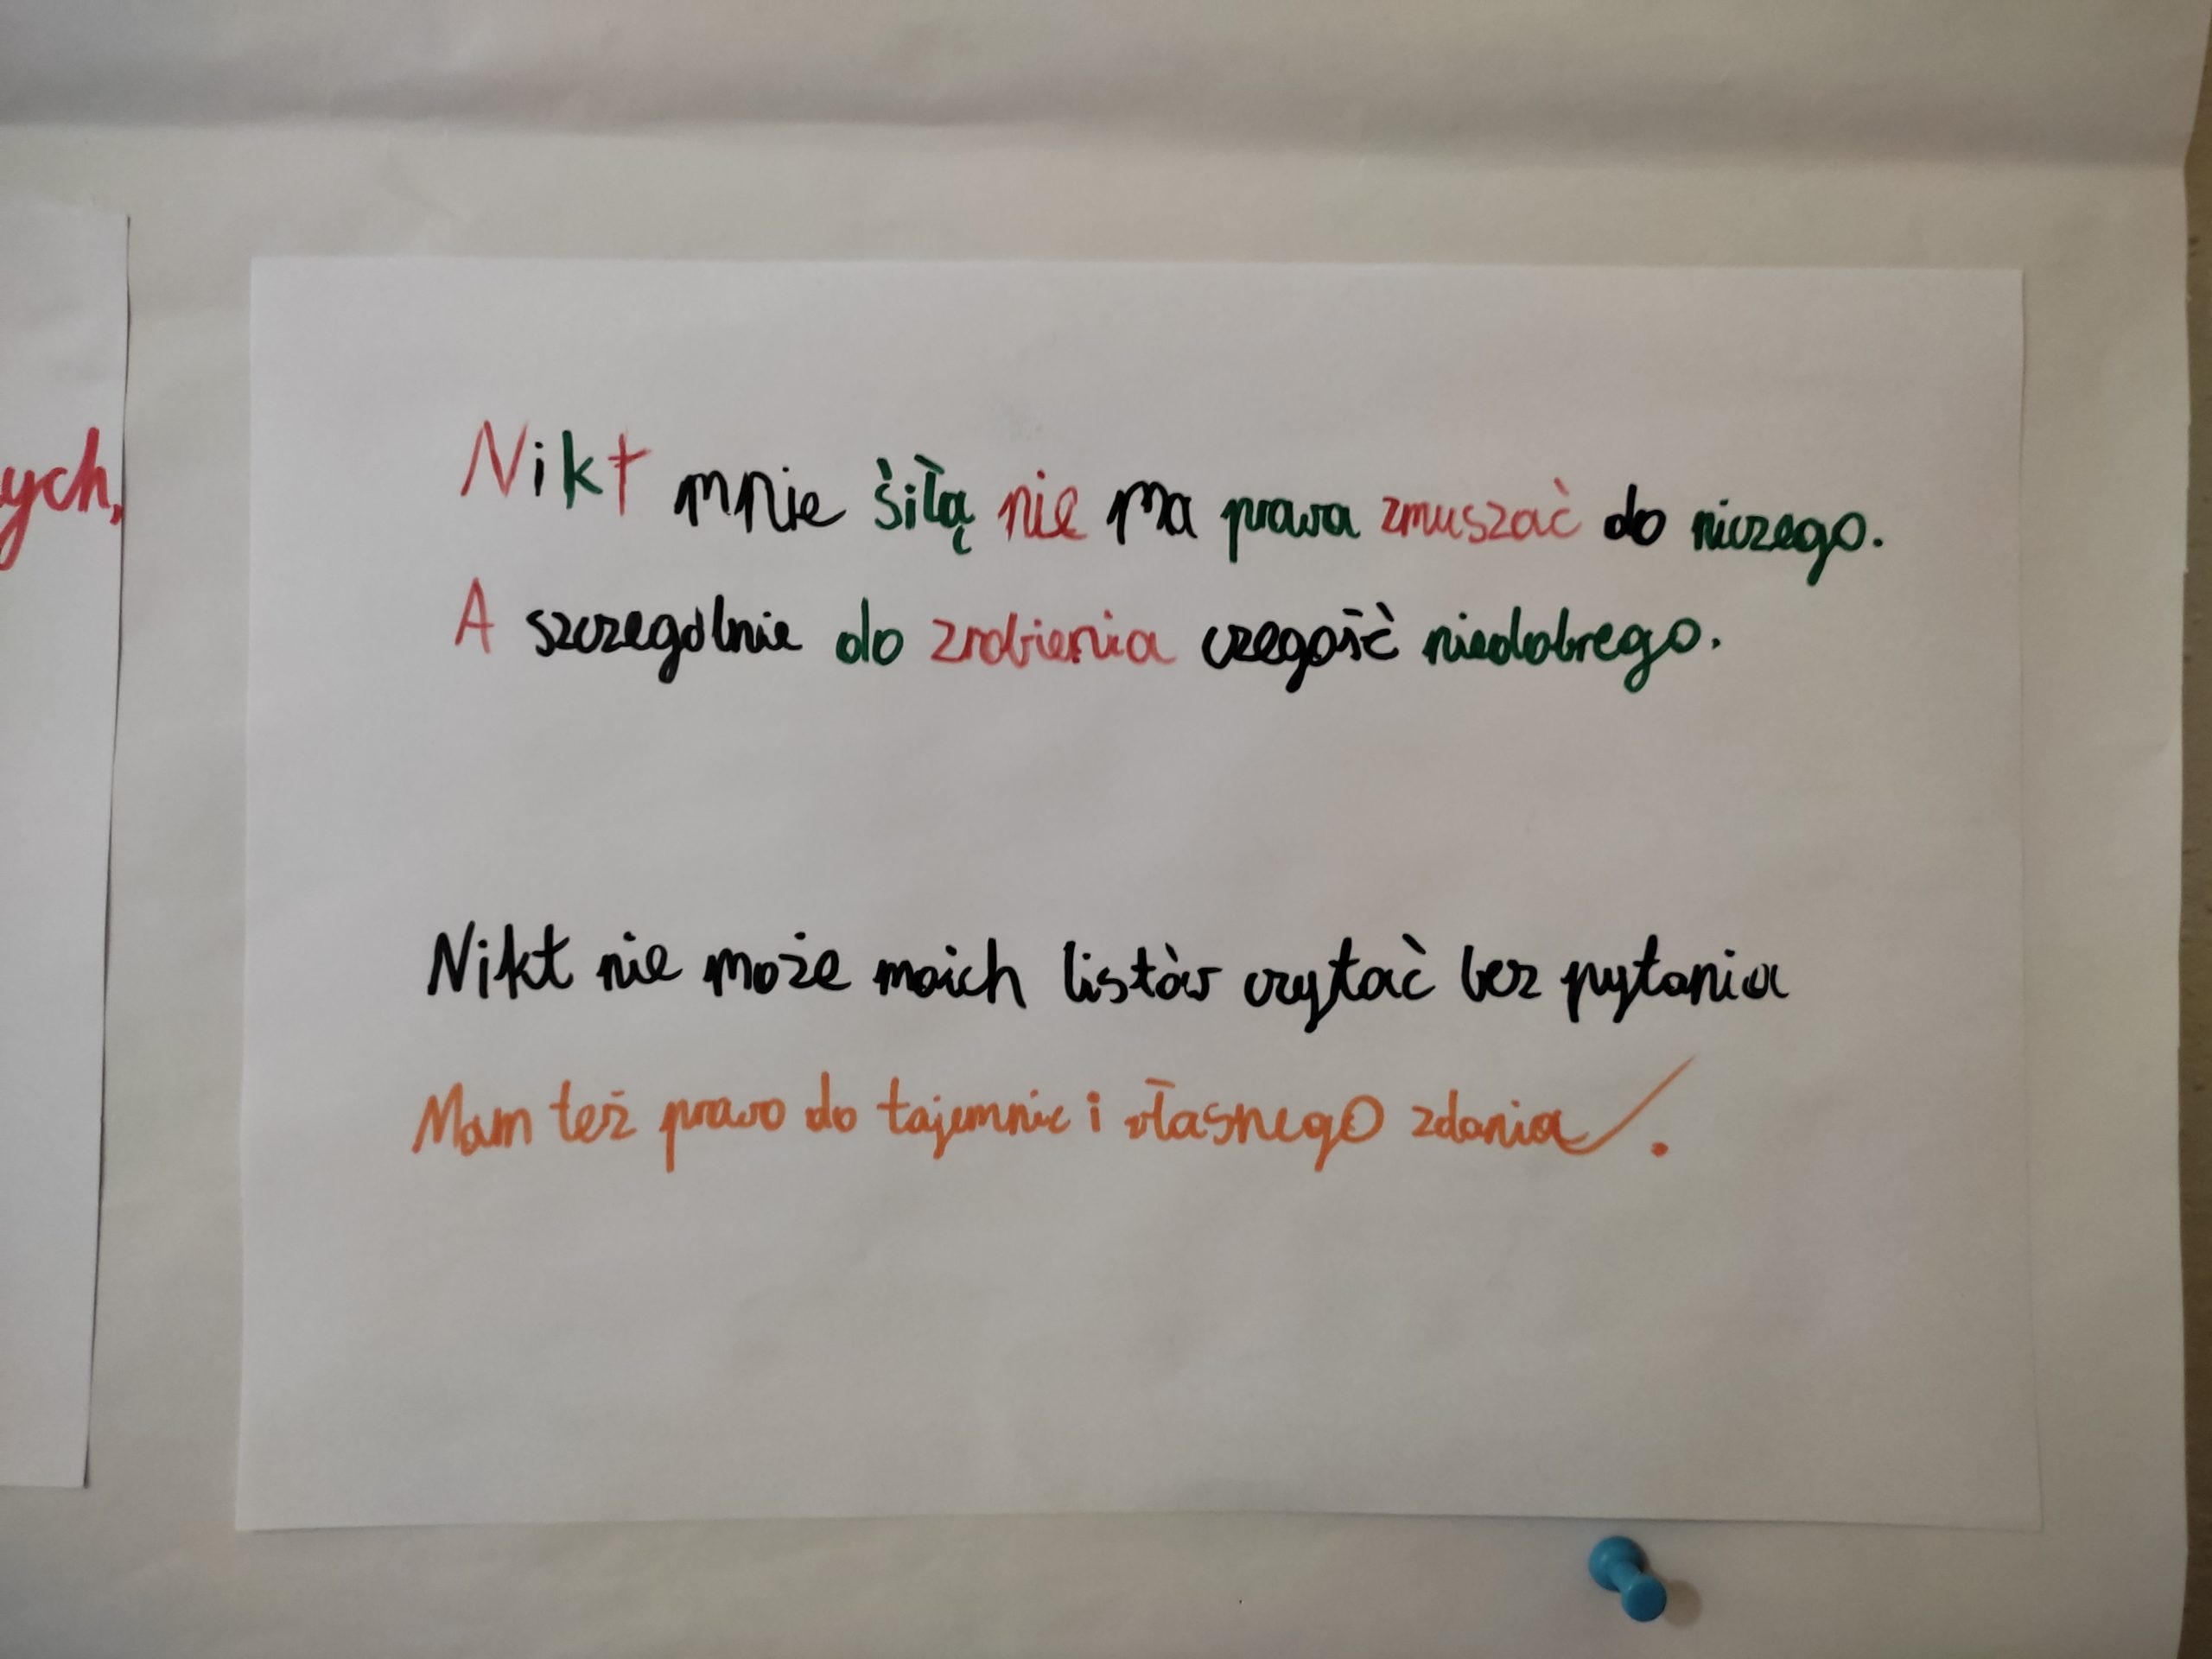 ych,
Nikt mnie śiłą nie ma prawa zmuszać do niczego.
A szczególnie do zrobienia czegość niedobrego.
Nikt nie może moich listów czytać bez pytania
Mam też prawo do tajemnic i własnego zdania.